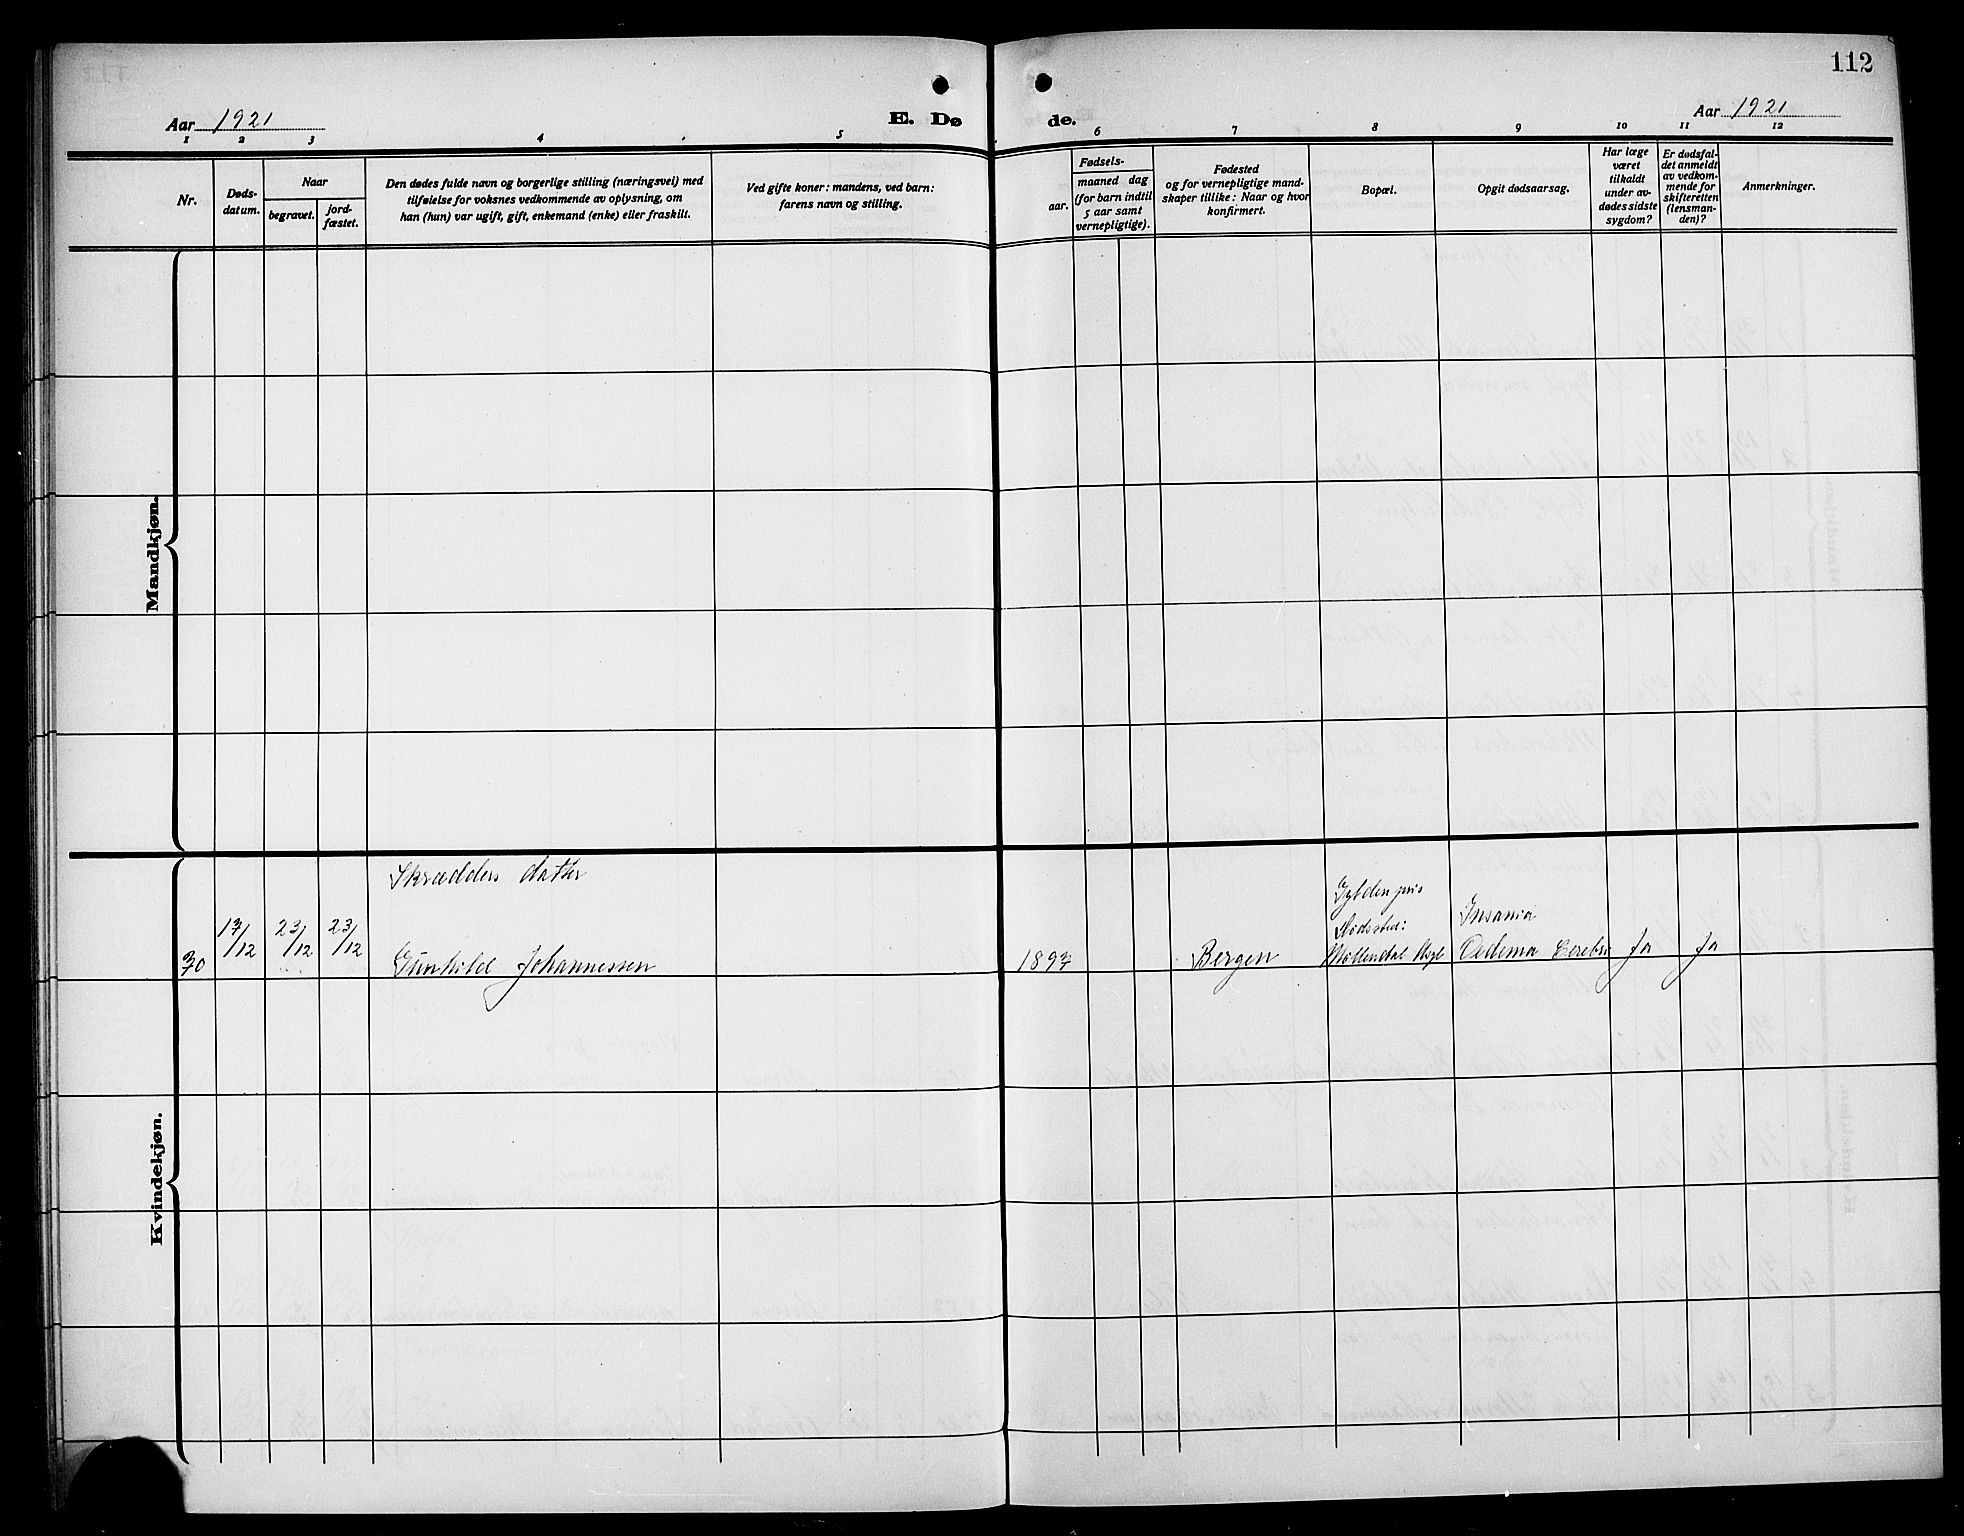 112
Aar 1921
E. Dø de.
Aar 1921
1 2 3 4 5 6 7 8 9 10 11 12
Nr.
Døds-
datum.
Naar
begravet.
jord-
fæstet.
Den dødes fulde navn og borgerlige stilling (næringsvei) med
tilføielse for voksnes vedkommende av oplysning, om
han (hun) var ugift, gift, enkemand (enke) eller fraskilt.
Ved gifte koner: mandens, ved barn:
farens navn og stilling.
Fødsels-
aar.
maaned dag
(for barn indtil
5 aar samt
vernepligtige).
Fødested
og for vernepligtige mand-
skaper tillike: Naar og hvor
konfirmert.
Bopæl.
Opgit dødsaarsag.
Har læge
været
tilkaldt
under av-
dødes sidste
sygdom?
Er dødsfal-
det anmeldt
av vedkom-
mende for
skifteretten
(lensman-
den)?
Anmerkninger.
Mandkjøn.
Kvindekjøn.
30
17/12
23/12
23/12
Skrædders datter
Gunhild Johannessen
1897
Bergen
Gyldenpris
Dødssted:
Møllendal Asyl
Insania
Oedema Cerebri
Ja
Ja